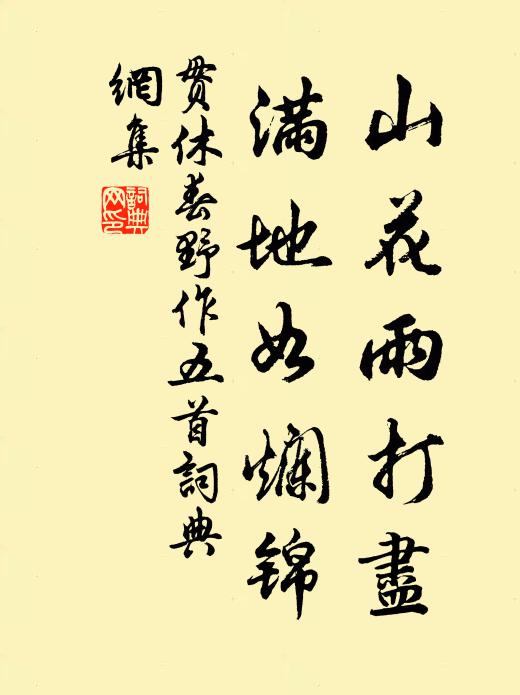 山花雨打盡
滿地如爛錦
貫休春野作五首詞典
網集
詞典
網印